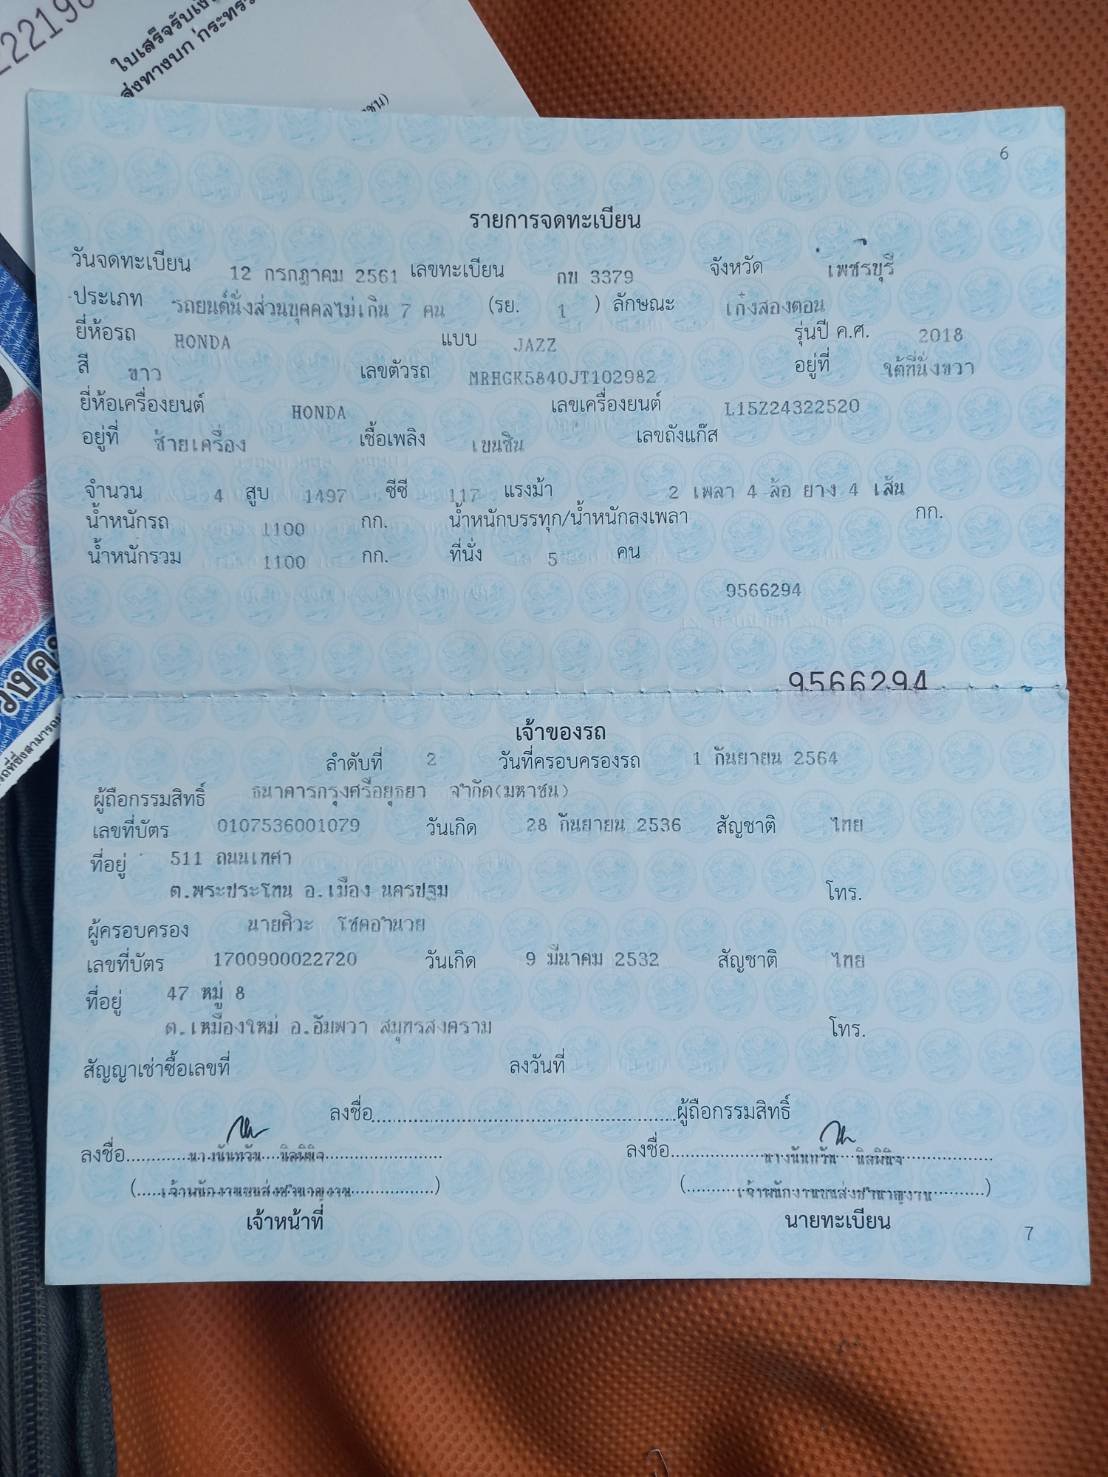 22219
ใบเสร็จรับเงิน
ส่งทางบก กระทรว
6
รายการจดทะเบียน
วันจดทะเบียน 12 กรกฎาคม 2561 เลขทะเบียน กข 3379 จังหวัด เพชรบุรี
ประเภท รถยนต์นั่งส่วนบุคคลไม่เกิน 7 คน (รย. 1 ) ลักษณะ เก๋งสองตอน
ยี่ห้อรถ HONDA แบบ JAZZ รุ่นปี ค.ศ. 2018
สี ขาว เลขตัวรถ MRHGK5840JT102982 อยู่ที่ ใต้ที่นั่งขวา
ยี่ห้อเครื่องยนต์ HONDA เลขเครื่องยนต์ L15Z24322520
อยู่ที่ ซ้ายเครื่อง เชื้อเพลิง เบนซิน เลขถังแก๊ส
จำนวน 4 สูบ 1497 ซีซี 117 แรงม้า 2 เพลา 4 ล้อ ยาง 4 เส้น
น้ำหนักรถ 1100 กก. น้ำหนักบรรทุก/น้ำหนักลงเพลา กก.
น้ำหนักรวม 1100 กก. ที่นั่ง 5 คน
9566294
9566294
เจ้าของรถ
ลำดับที่ 2 วันที่ครอบครองรถ 1 กันยายน 2564
ผู้ถือกรรมสิทธิ์ ธนาคารกรุงศรีอยุธยา จำกัด(มหาชน)
เลขที่บัตร 0107536001079 วันเกิด 28 กันยายน 2536 สัญชาติ ไทย
ที่อยู่ 511 ถนนเทศา
ต.พระประโทน อ.เมือง นครปฐม โทร.
ผู้ครอบครอง นายศิวะ โชคอำนวย
เลขที่บัตร 1700900022720 วันเกิด 9 มีนาคม 2532 สัญชาติ ไทย
ที่อยู่ 47 หมู่ 8
ต.เหมืองใหม่ อ.อัมพวา สมุทรสงคราม โทร.
สัญญาเช่าซื้อเลขที่ ลงวันที่
ลงชื่อ ผู้ถือกรรมสิทธิ์
ลงชื่อ นางนันทวัน นิลพินิจ ลงชื่อ นางนันทวัน นิลพินิจ
(เจ้าพนักงานขนส่งชำนาญงาน) (เจ้าพนักงานขนส่งชำนาญงาน)
เจ้าหน้าที่ นายทะเบียน
7